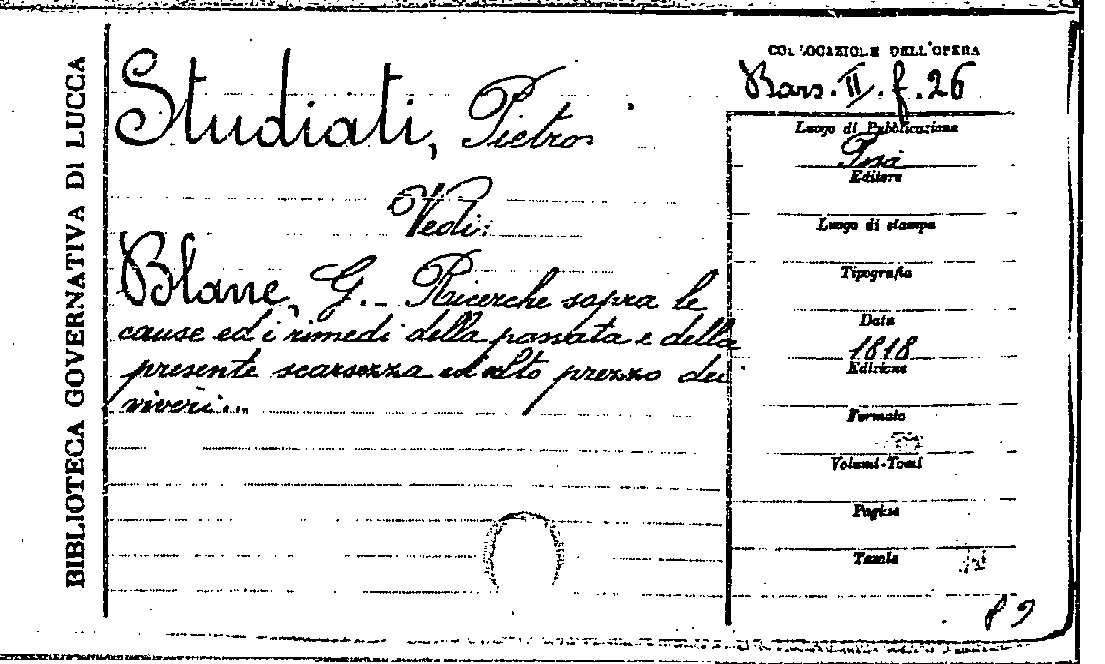 BIBLIOTECA GOVERNATIVA DI LUCCA
Studiati, Pietro
Vedi:
Blane, G. - Ricerche sopra le
cause ed i rimedi della passata e della
presente scarsezza ed alto prezzo dei
viveri...
COLLOCAZIONE DELL'OPERA
Bars. II. f. 26
Luogo di Pubblicazione
Editore
Luogo di stampa
Tipografia
Data
1818
Edizione
Formato
Volumi-Tomi
Pagine
Tavole